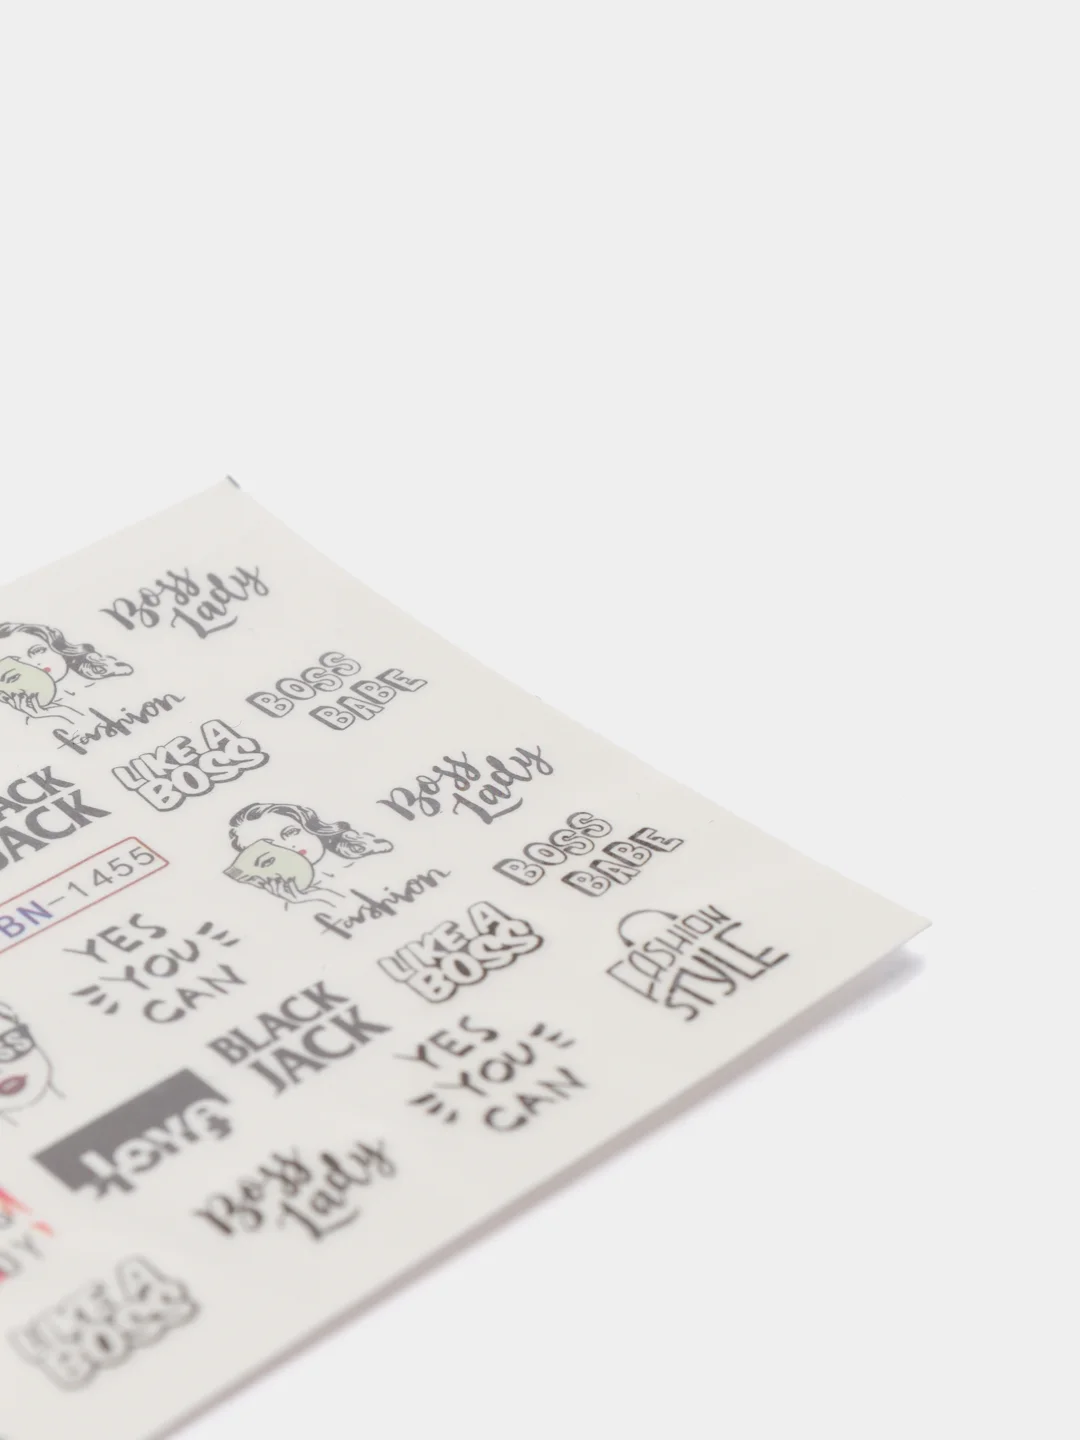 Boss
Lady
fashion
BOSS
BABE
LIKE A
BOSS
JACK
Boss
Lady
BN-1455
fashion
BOSS
BABE
YES
YOU
CAN
LIKE A
BOSS
FASHION
STYLE
BLACK
JACK
YES
YOU
CAN
LOVE
Boss
Lady
LIKE A
BOSS